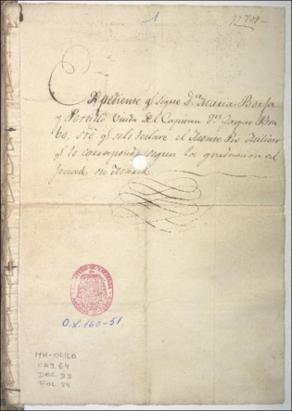 1
Expediente q.e sigue D.a Maria Borja
y Portillo Viuda del Capitan D.n Gaspar
sre. q.e se le declare el Monte Pio Militar
q.e le corresponde segun la graduacion del
su
O.L. 160-51
MH-OL160
CAJ. 64
DOC. 99
FOL. 24